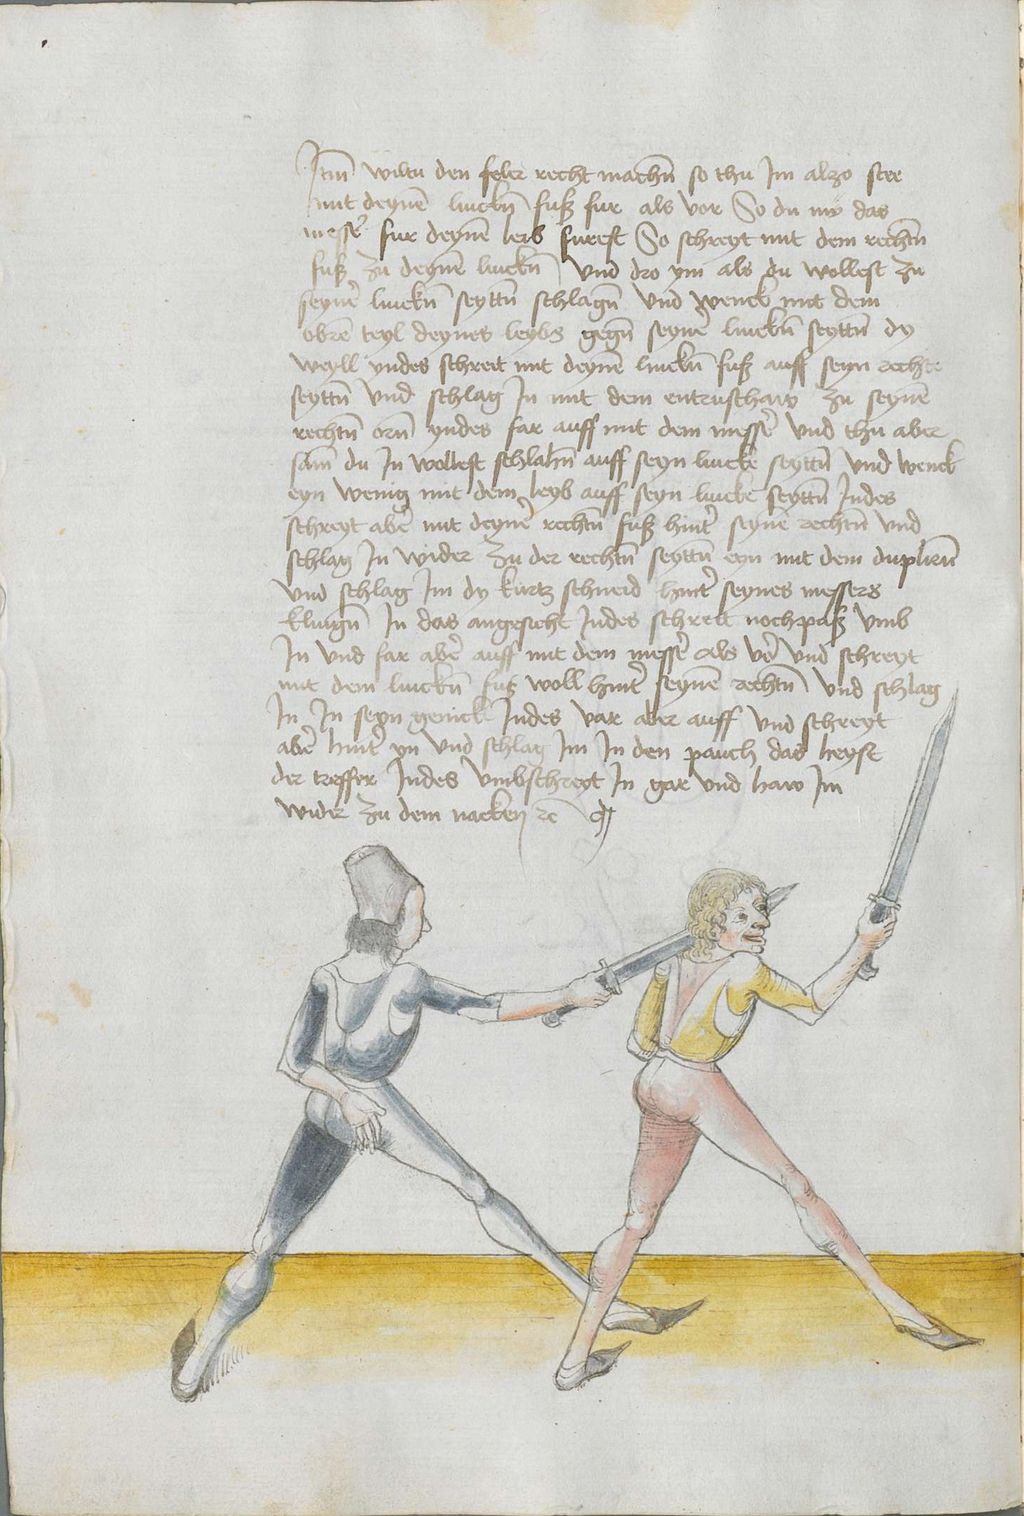 Itm̄ wiltu den feler recht machn̄ so thu Im alzo stee
mit deynē linckn̄ fuß fur als vor So du im das
messē fur deynē leib furest So schreyt mit dem rechtn̄
fuß zu deynē linckn̄ und dro ym als du wollest zu
seynē linckn̄ seyttn̄ schlagn̄ und wenck mit dem
obrē teyl deynes leybs gegn̄ seynē linckn̄ seyttn̄ dy
weyll yndes schreit mit deynē linckn̄ fuß auff seyn rechte
seyttn̄ und schlag In mit dem entrusthaw zu seynē
rechtn̄ orn̄ yndes far auff mit dem messē und thu aber
sam̄ du In wollest schlahn̄ auff seyn lincke seyttn̄ und wenck
eyn wenig mit dem leyb auff seyn lincke seyttn̄ Indes
schreyt abē mit deynē rechtn̄ fuß hintē seynē rechtn̄ und
schlag In wider zu der rechtn̄ seyttn̄ eyn mit dem duplirn̄
und schlag Im dy kurtz schneid hintē seynes messers
klingn̄ In das angesicht Indes schreit noch paß umb
In und far abē auff mit dem messē als vē und schreyt
mit dem linckn̄ fuß woll hintē seynē rechtn̄ und schlag
In In seyn genick Indes var aber auff und schreyt
abē hintē yn und schlag Im In den pauch das heyst
der treffer Indes umbschreyt In gar und haw Im
wider zu dem nacken ꝛc